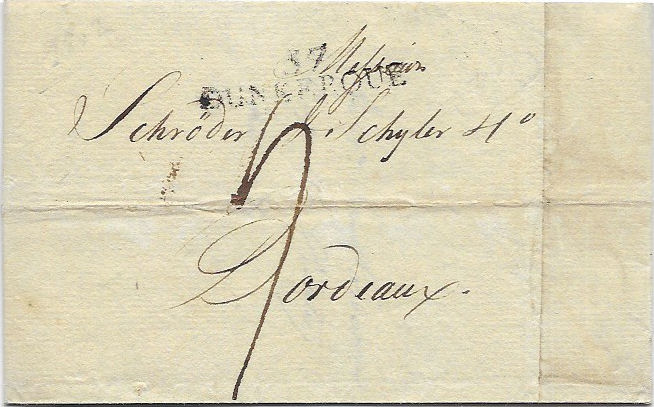 57
DUNKERQUE
Messieurs
Schröder & Schyler & Co
9
Bordeaux.